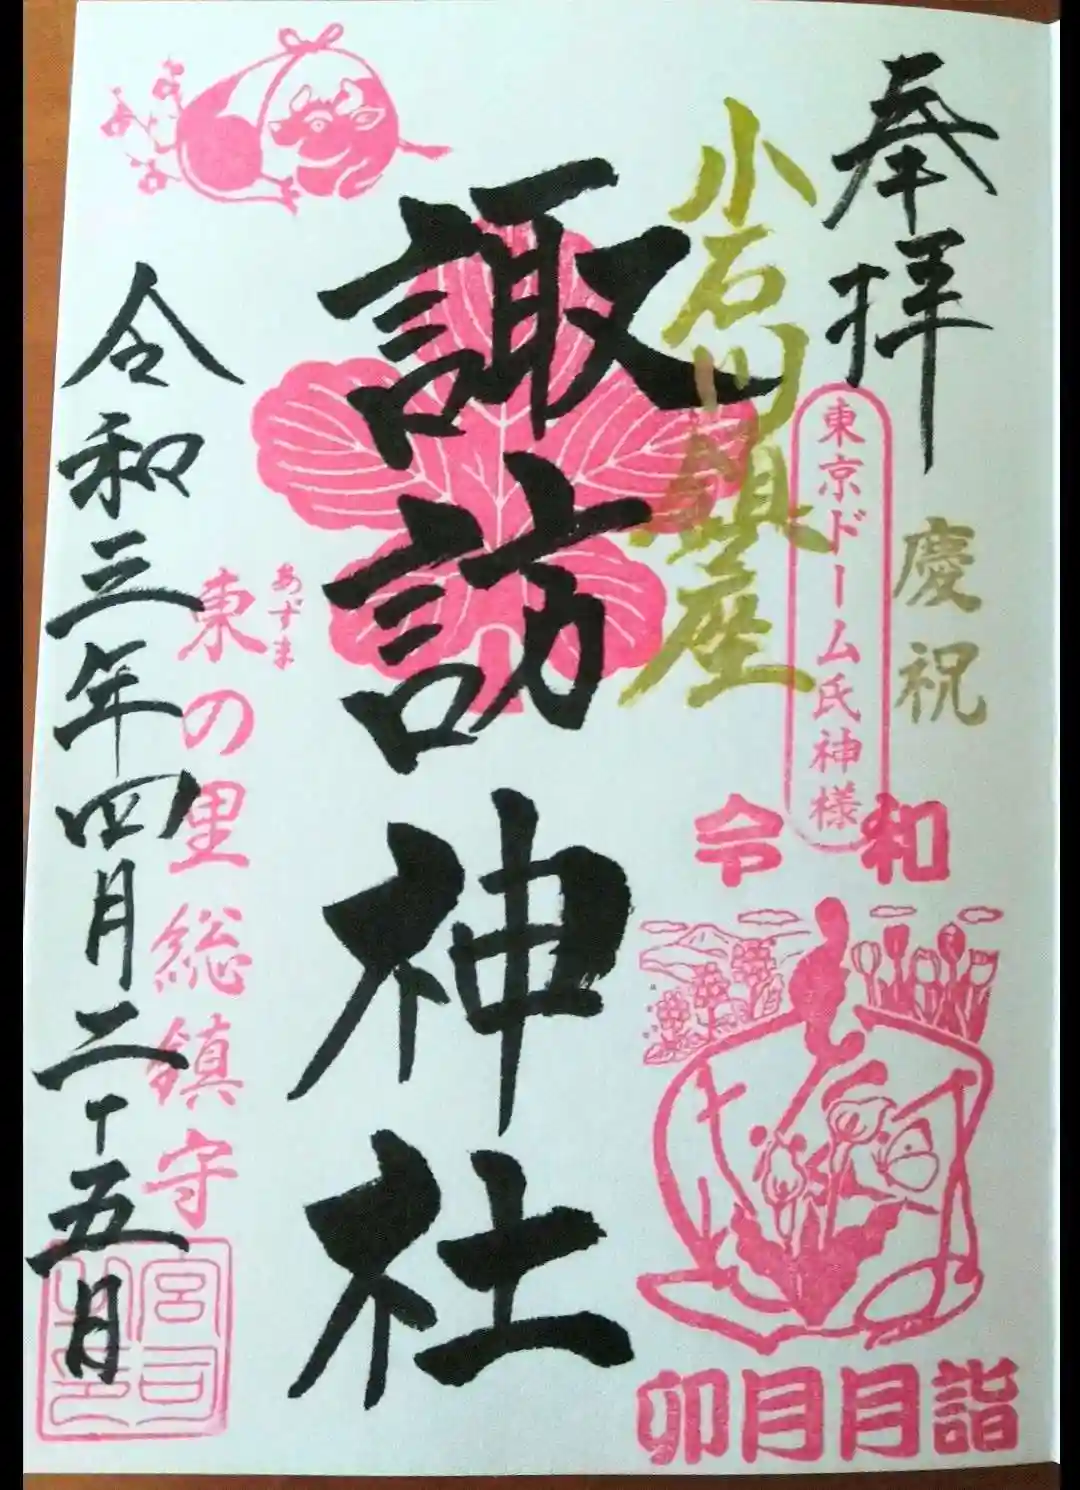 奉拝
慶祝
東京ドーム氏神様
小石川鎮座
令和
卯月月詣
諏訪神社
あずま
東の里総鎮守
令和三年四月二十五日
宮司